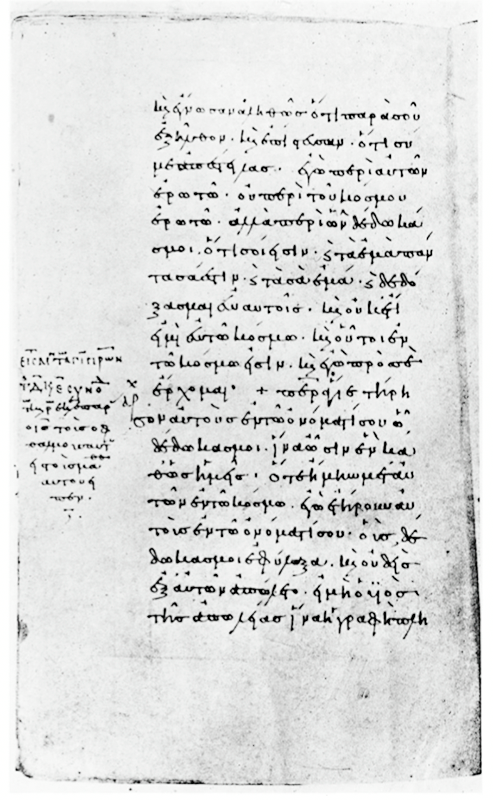 κ̀ ἔγνωσαν ἀληθῶς ὅτι παρὰ σοῦ
ἐξῆλθον· κ̀ ἐπίστευσαν· ὅτι σύ
με ἀπέστειλας· ἐγὼ περὶ αὐτῶν
ἐρωτῶ· οὐ περὶ τοῦ κόσμου
ἐρωτῶ· ἀλλὰ περὶ ὧν δέδωκά
σμοι, ὅτι σοί εἰσιν· ϗ τὰ ἐμὰ πάν
τα σά ἐστιν· ϗ τὰ σὰ ἐμά· ϗ δεδό
ξασμαι ἐν αὐτοῖς· κ̀ οὐκέτι
εἰμὶ ἐν τῷ κόσμῳ· κ̀ οὗτοι ἐν
τῷ κόσμῳ εἰσίν· κ̀ ἐγὼ πρός σε
ἔρχομαι· + περ ἅγιε τήρη
σον αὐτοὺς ἐν τῷ ὀνόματί σου ᾧ
δέδωκάς μοι· ἵνα ὦσιν ἓν κα
θὼς ἡμεῖς· ὅτε ἤμην μετ αὐ
τῶν ἐν τῷ κόσμῳ· ἐγὼ ἐτήρουν αὐ
τοὺς ἐν τῷ ὀνόματί σου· οὓς δέ
δωκάς μοι ἐφύλαξα· κ̀ οὐδεὶς
ἐξ αὐτῶν ἀπώλετο· εἰ μὴ ὁ υἱὸς
τῆς ἀπωλείας ἵνα ἡ γραφὴ πλη
αὐτοῦ εἶ
πεν·